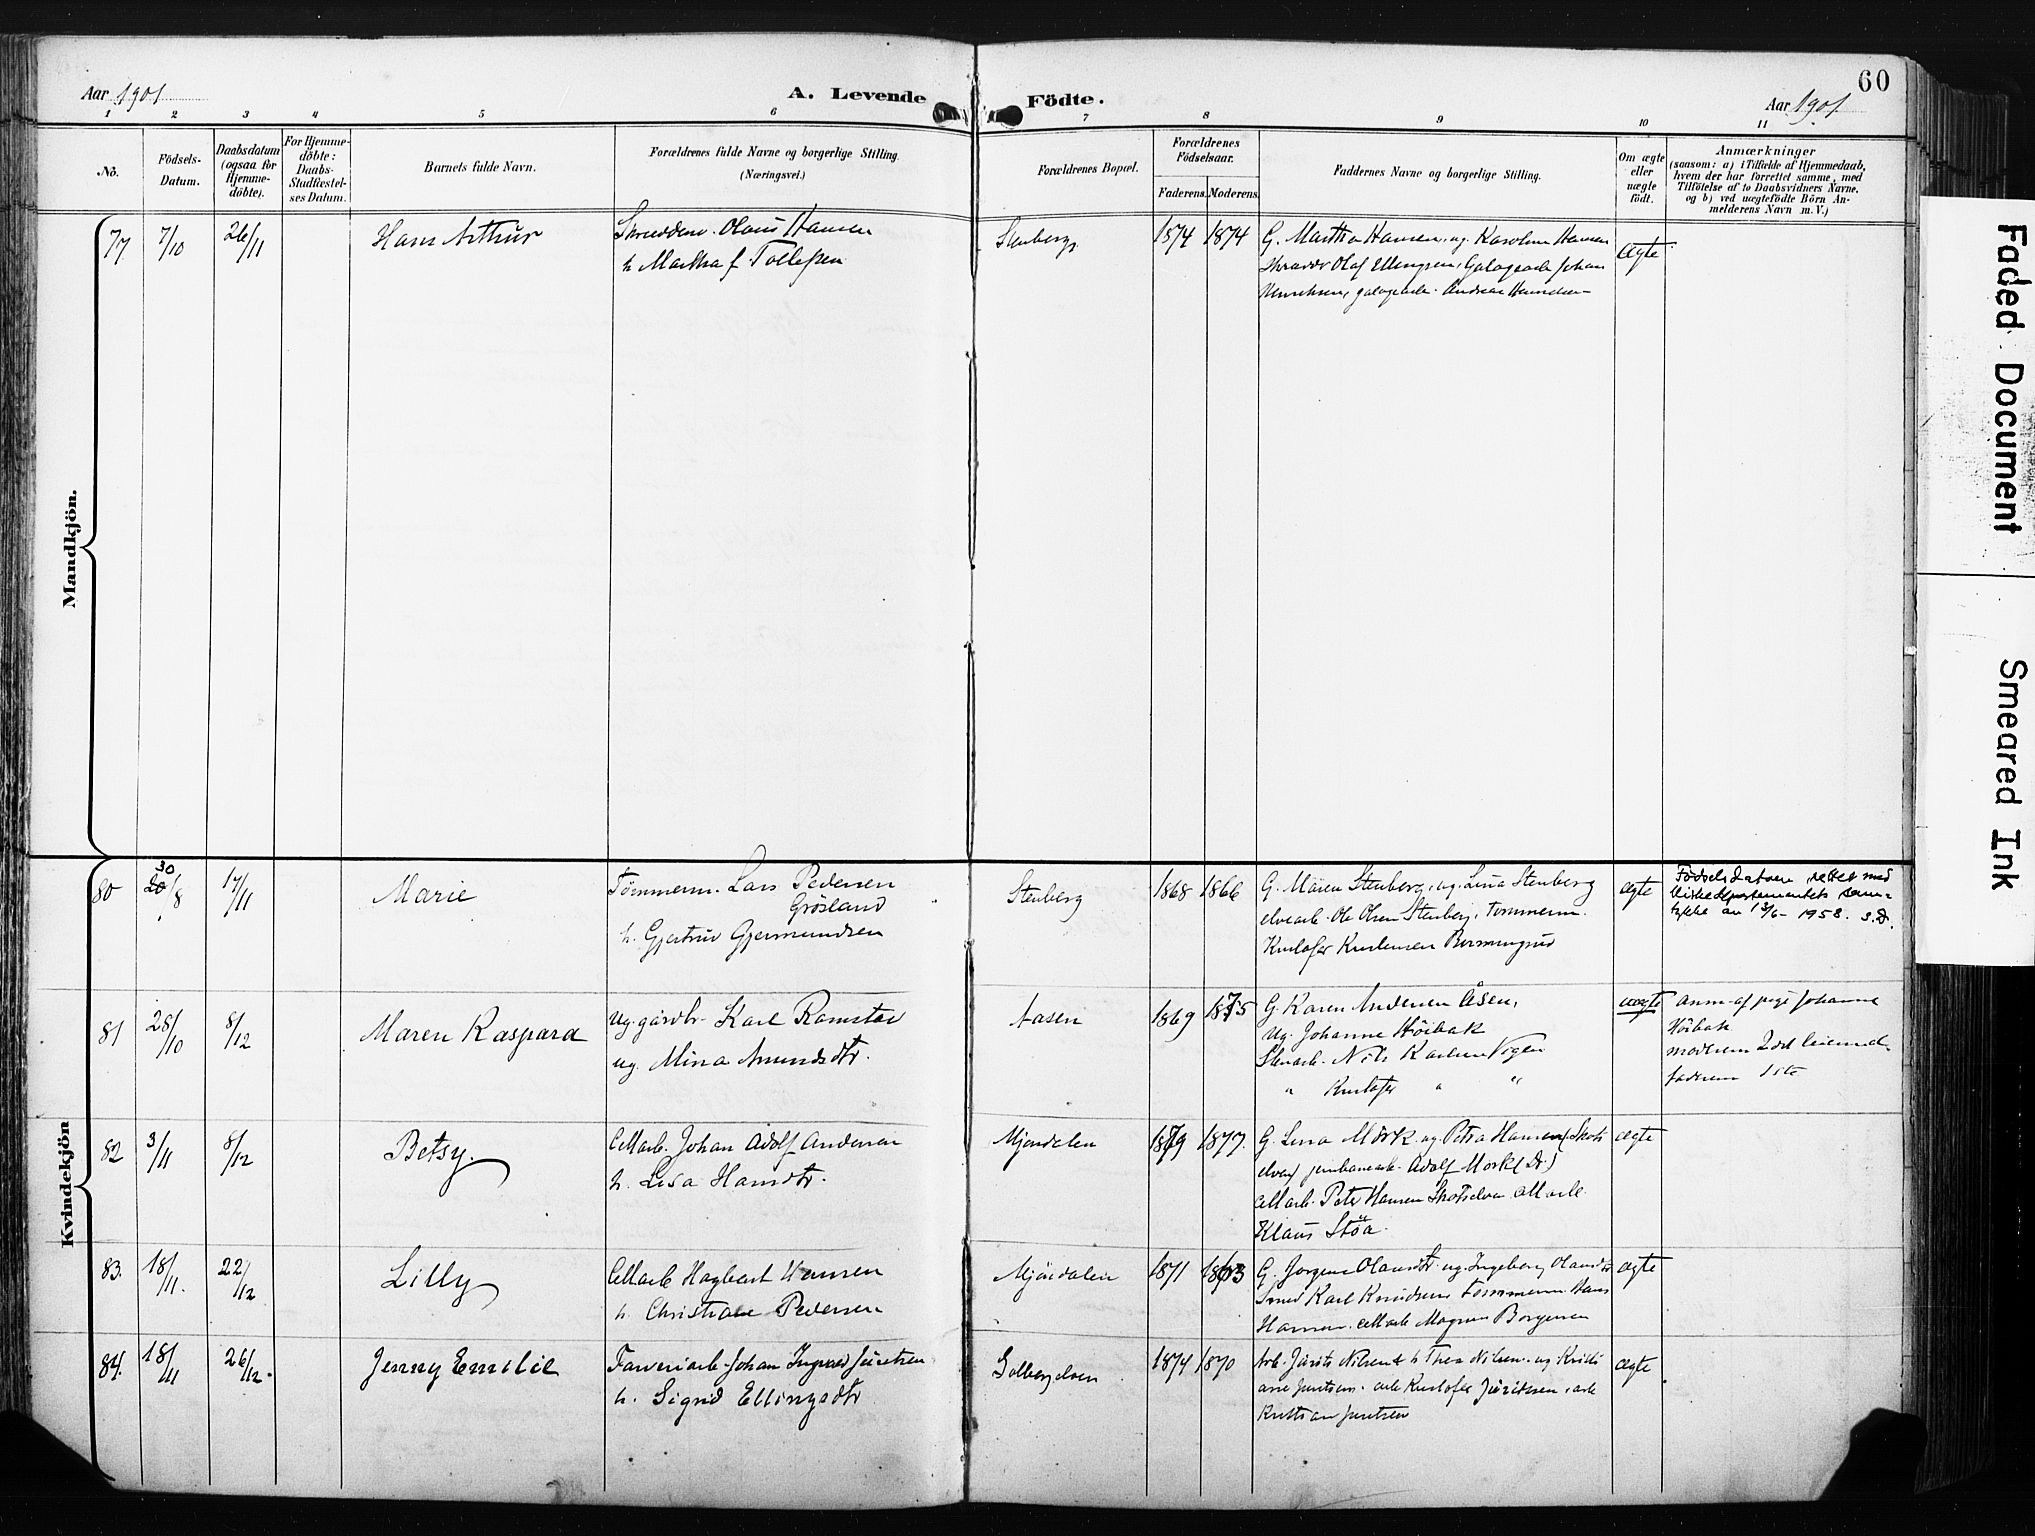 60
Aar 1901
A. Levende Födte.
Aar 1901
1 2 3 4 5 6 7 8 9 10 11
No.
Födsels-
Datum.
Daabsdatum
(ogsaa for
Hjemme-
döbte).
For Hjemme-
döbte:
Daabs-
Stadfæstel-
ses Datum.
Barnets fulde Navn.
Forældrenes fulde Navne og borgerlige Stilling.
(Næringsvei.)
Forældrenes Bopæl.
Forældrenes
Födselsaar.
Faderens. Moderens.
Faddernes Navne og borgerlige Stilling.
Om ægte
eller
uægte
födt.
Anmærkninger
(saasom: a) i Tilfælde af Hjemmedaab,
hvem der har forrettet samme, med
Tilföielse af to Daabsvidners Navne,
og b) ved uægtefödte Börn An-
melderens Navn m. V.)
Mandkjön.
77 7/10 26/11 Hans Arthur
Skrædderm. Olaus Hansen
h. Martha f. Tollefsen
Stenberg 1874 1874
G. Marthe Hansen, ug. Karoline Hansen
Skrædder Olaf Ellingsen, Johan
Henriksen, Andreas
Ægte
Kvindekjön
80 30 20/8 17/11 Marie
Tömmerm. Lars Pedersen
Grösland
h. Gjertrud Gjermundsen
Stenberg 1868 1866
G. Maren Stenberg, ug. Lina Stenberg
elvearb. Ole Olsen Stenberg, Tömmerm.
Kristofer Kristensen
ægte
Födselsdatoen rettet med
Kirkedepartementets sam-
tykke av 13/6-1958. S.D.
81 28/10 8/12 Maren Kaspara
Ug. gårdbr. Karl Ramstad
ug. Mina Amundsdtr.
Aasen 1869 1875
G. Karen Andersen Åsen,
Ug. Johanne Höibak
Nils Karlsen Vogen
" Kristofer " "
uægte
Anm. af pige Johanne
Höibak
moderens 2det leiermål
faderens 1ste
82 3/11 8/12 Betsy.
Cellarb. Johan Adolf Andersen
h. Lisa Hansdtr.
Mjöndalen 1879 1877.
G. Lina Mörk. ug. Petra Hansen (Skots
elven) jernbanearb. Adolf Mörk (Dr.)
cellarb. Peter Hansen Skotselven cellarb.
Klaus Stöa.
ægte
83. 18/11. 22/12 Lilly
Cellarb. Hagbart Hansen
h. Christiane Pedersen
Mjöndalen 1871 1873
G. Jorgine Olausdtr. ug. Ingeborg Olausdtr
Smed Karl Knudsen Tömmerm. Hans
Hansen. cellarb. Magnus Borgersen
ægte
84. 18/11 26/12. Jenny Emilie
Farveriarb. Johan Ingvald Juritsen
h. Sigrid Ellingsdtr.
Solbergelven 1874 1870
Arb. Jürits Nilsen & h. Thea Nilsen. ug. Kristi
ane Juritsen. arb. Kristofer Juritsen, arb.
Kristian Juritsen
ægte
Faded Document
Smeared Ink